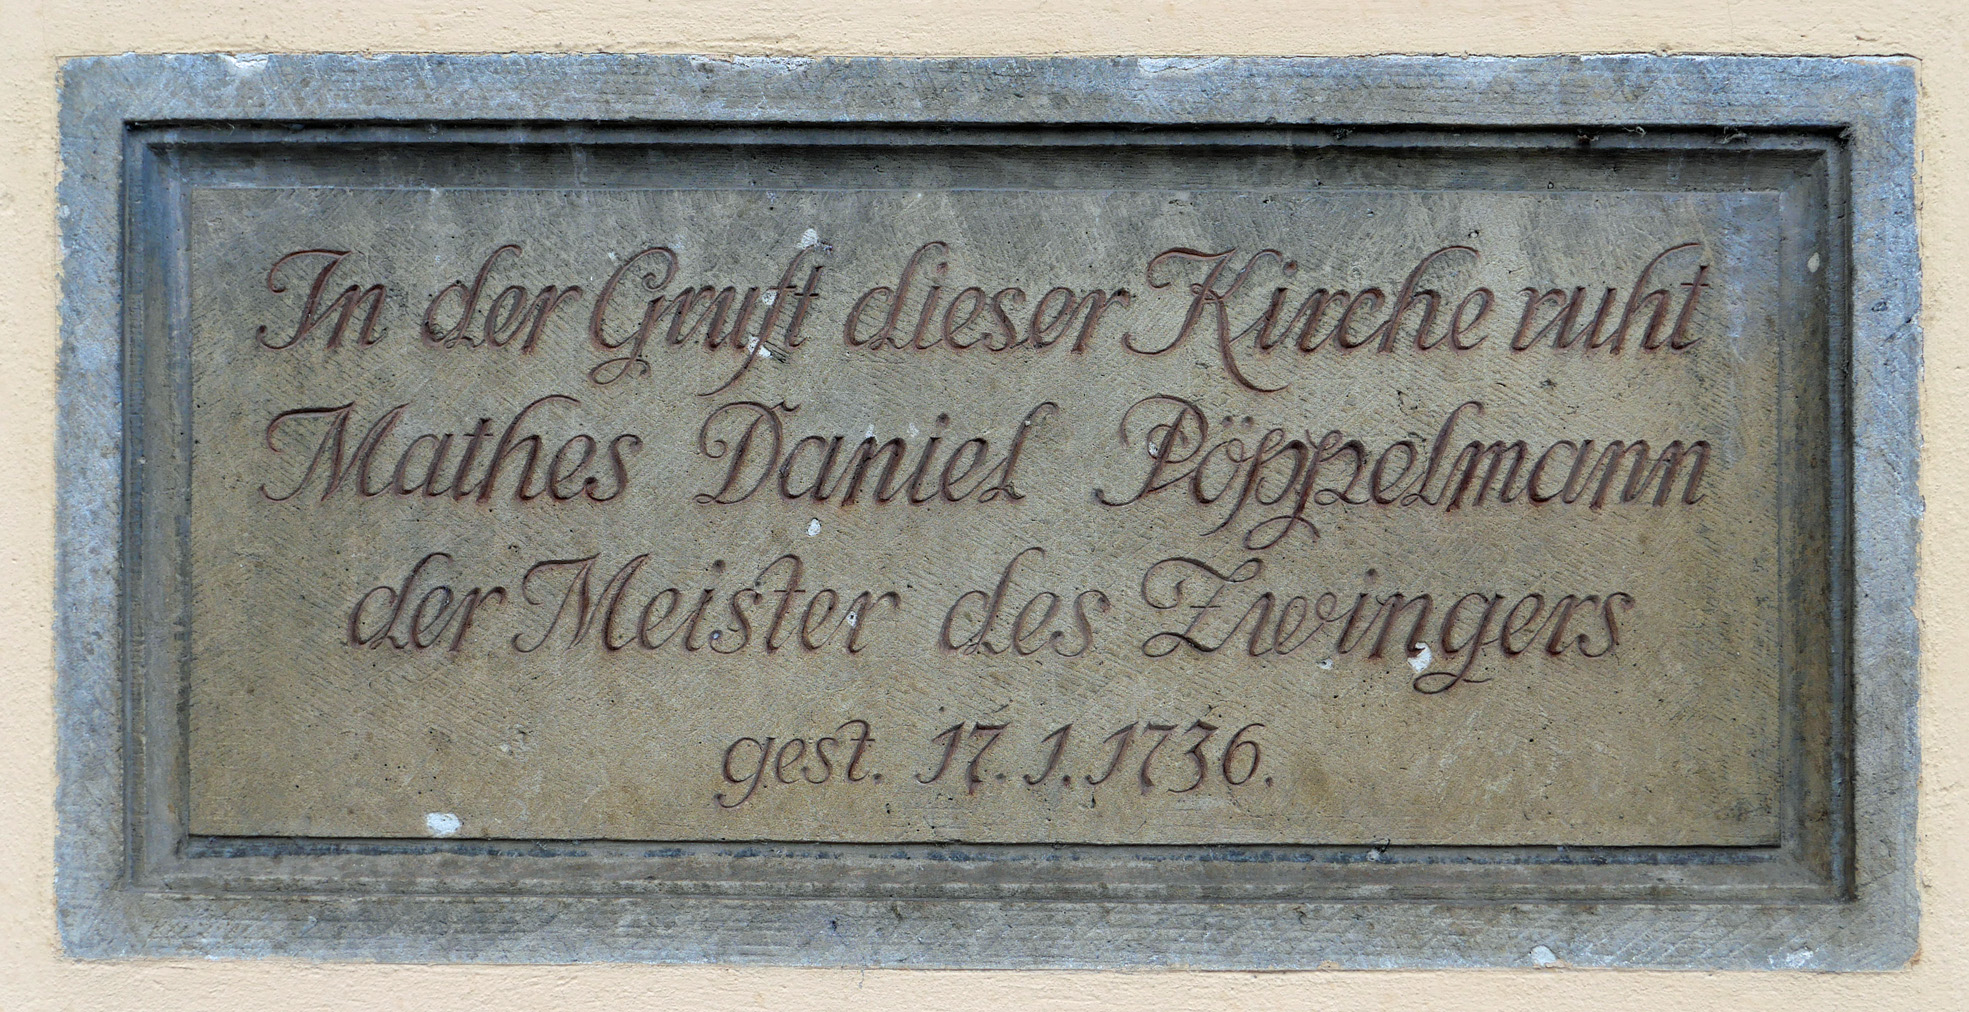 In der Gruft dieser Kirche ruht
Mathes Daniel Pöppelmann
der Meister des Zwingers
gest. 17. 1. 1736.